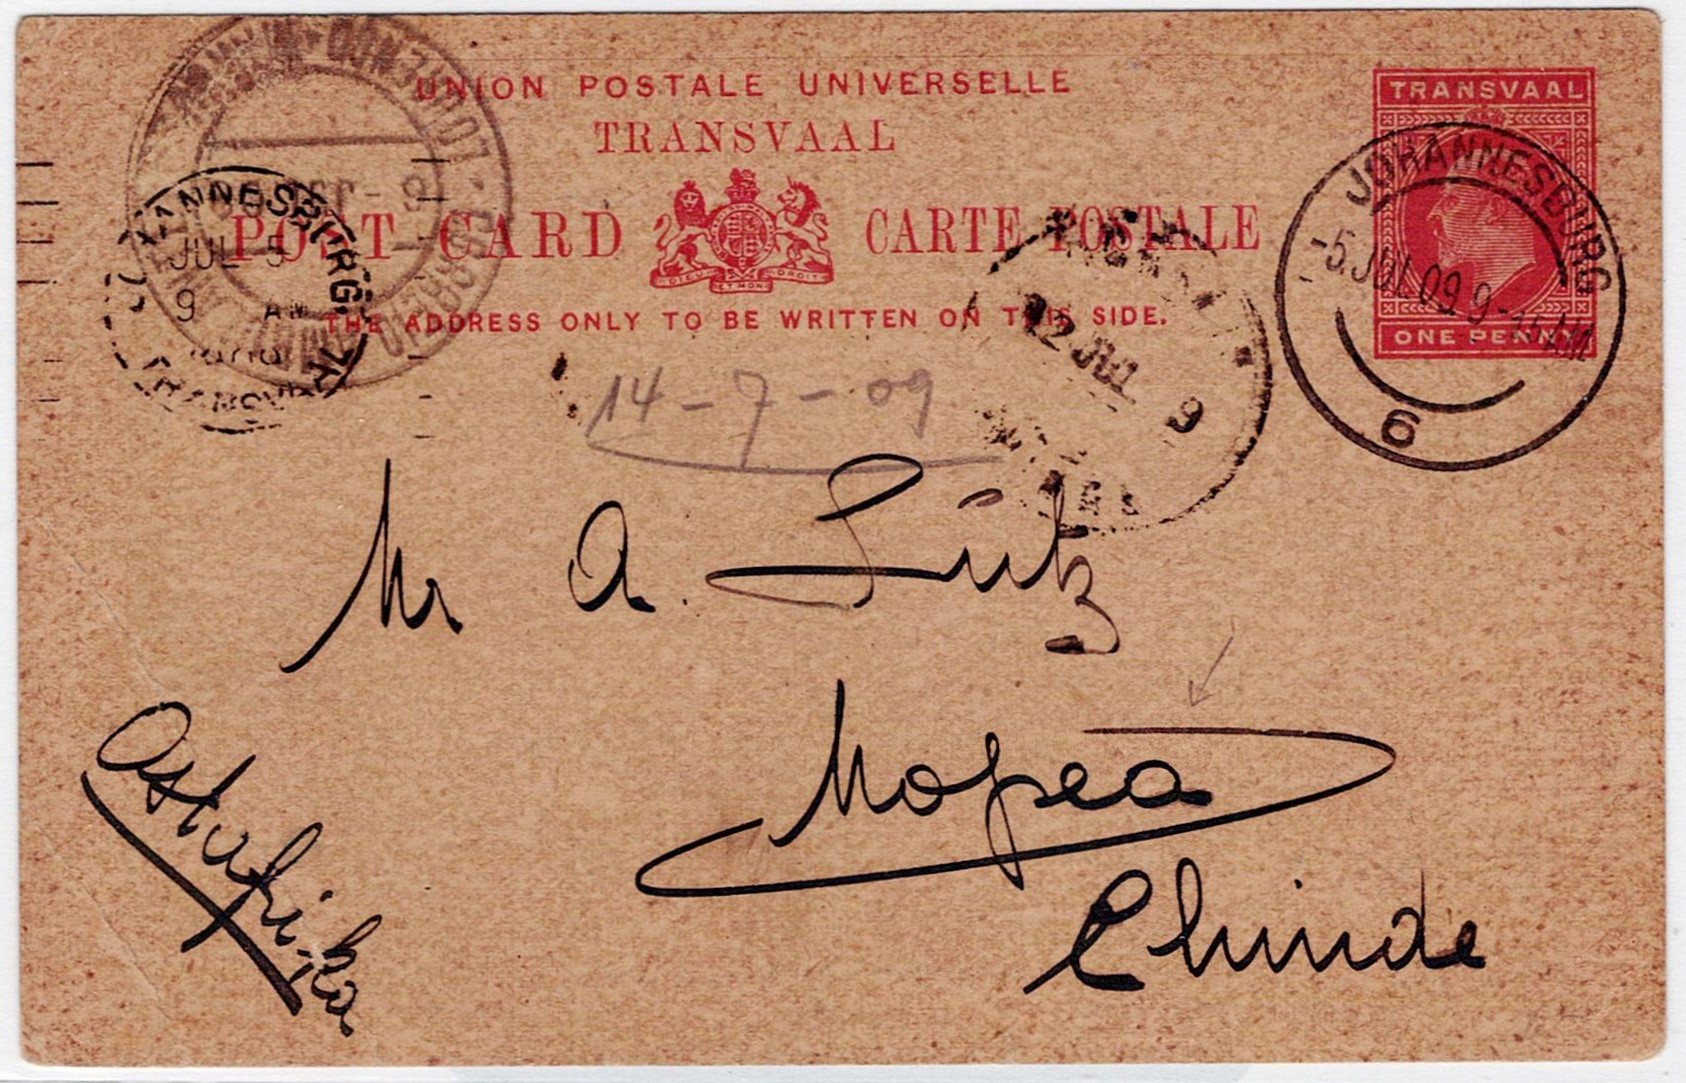 UNION POSTALE UNIVERSELLE
TRANSVAAL
TRANSVAAL
POST CARD CARTE POSTALE
THE ADDRESS ONLY TO BE WRITTEN ON THIS SIDE.
ONE PENNY
DIEU ET MON DROIT
JOHANNESBURG
-5 JUL 09 9-15 AM
6
JOHANNESBURG
JUL 5
9 AM
TRANSVAAL
CORREIO
LOURENÇO MARQUES
12 JUL 9
14-7-09
Mr A. Lütz
Mopea
Chinde
Ostafrika